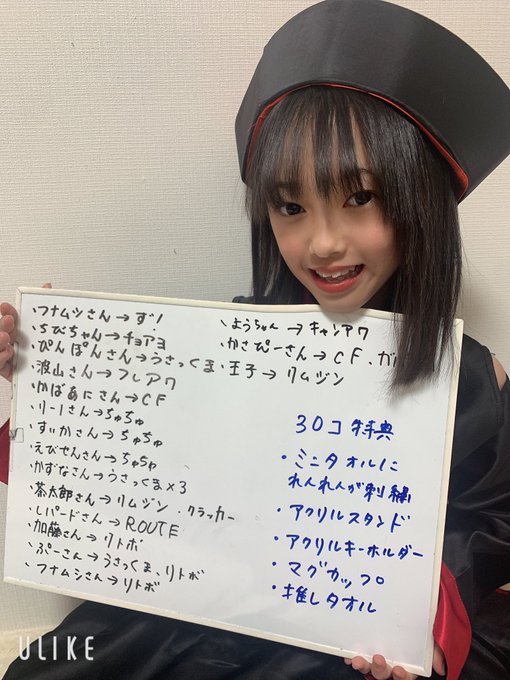 ・フナムシさん→ず!
・ちびちゃん→チョアヨ
・ぴんぽんさん→うさっくま
・波山さん→フレアワ
・かばあにさん→CF
・りーりさん→ちゅちゅ
・すいかさん→ちゅちゅ
・えびせんさん→ちゅちゅ
・かずなさん→うさっくま×3
・茶太郎さん→リムジン・クラッカー
・レパードさん→ROUTE
・加藤さん→リトボ
・ぷーさん→うさっくま、リトボ
・フナムシさん→リトボ
・ようちゃん→キャンアワ
・かさぴーさん→CF、ガ
・王子→リムジン
30コ特典
・ミニタオルに
れんれんが刺繍
・アクリルスタンド
・アクリルキーホルダー
・マグカップ
・推しタオル
ULIKE